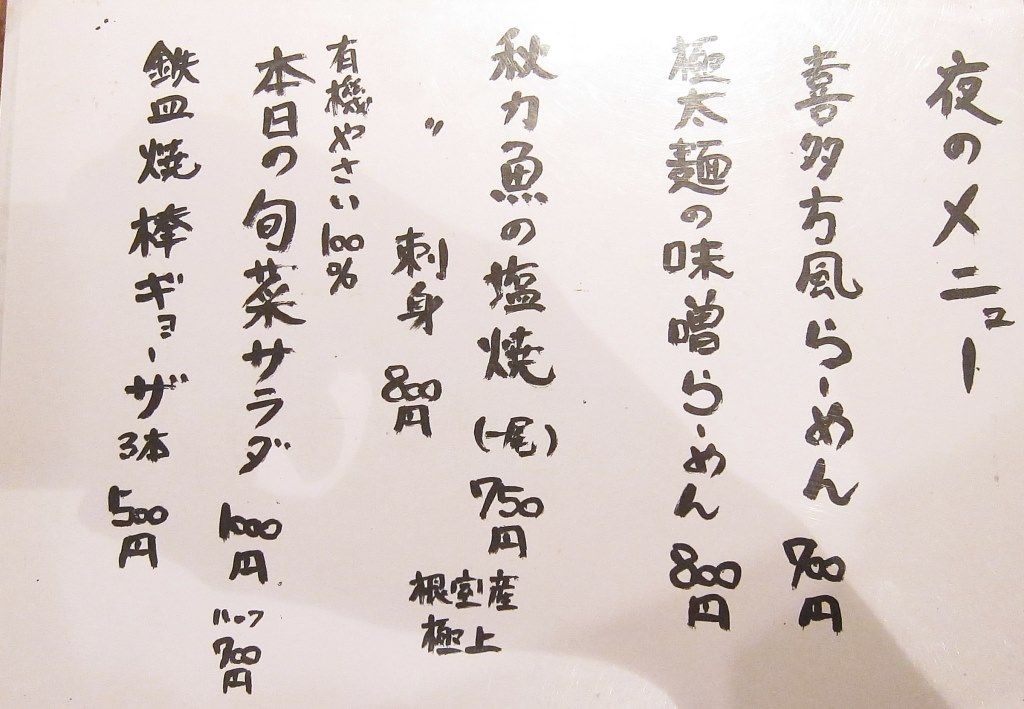 夜のメニュー
喜多方風らーめん 700円
極太麺の味噌らーめん 800円
秋刀魚の塩焼(一尾) 750円
根室産
極上
〃 刺身 800円
有機やさい100%
本日の旬菜サラダ 1000円
ハーフ 700円
鉄皿焼 棒ギョーザ 3本 500円